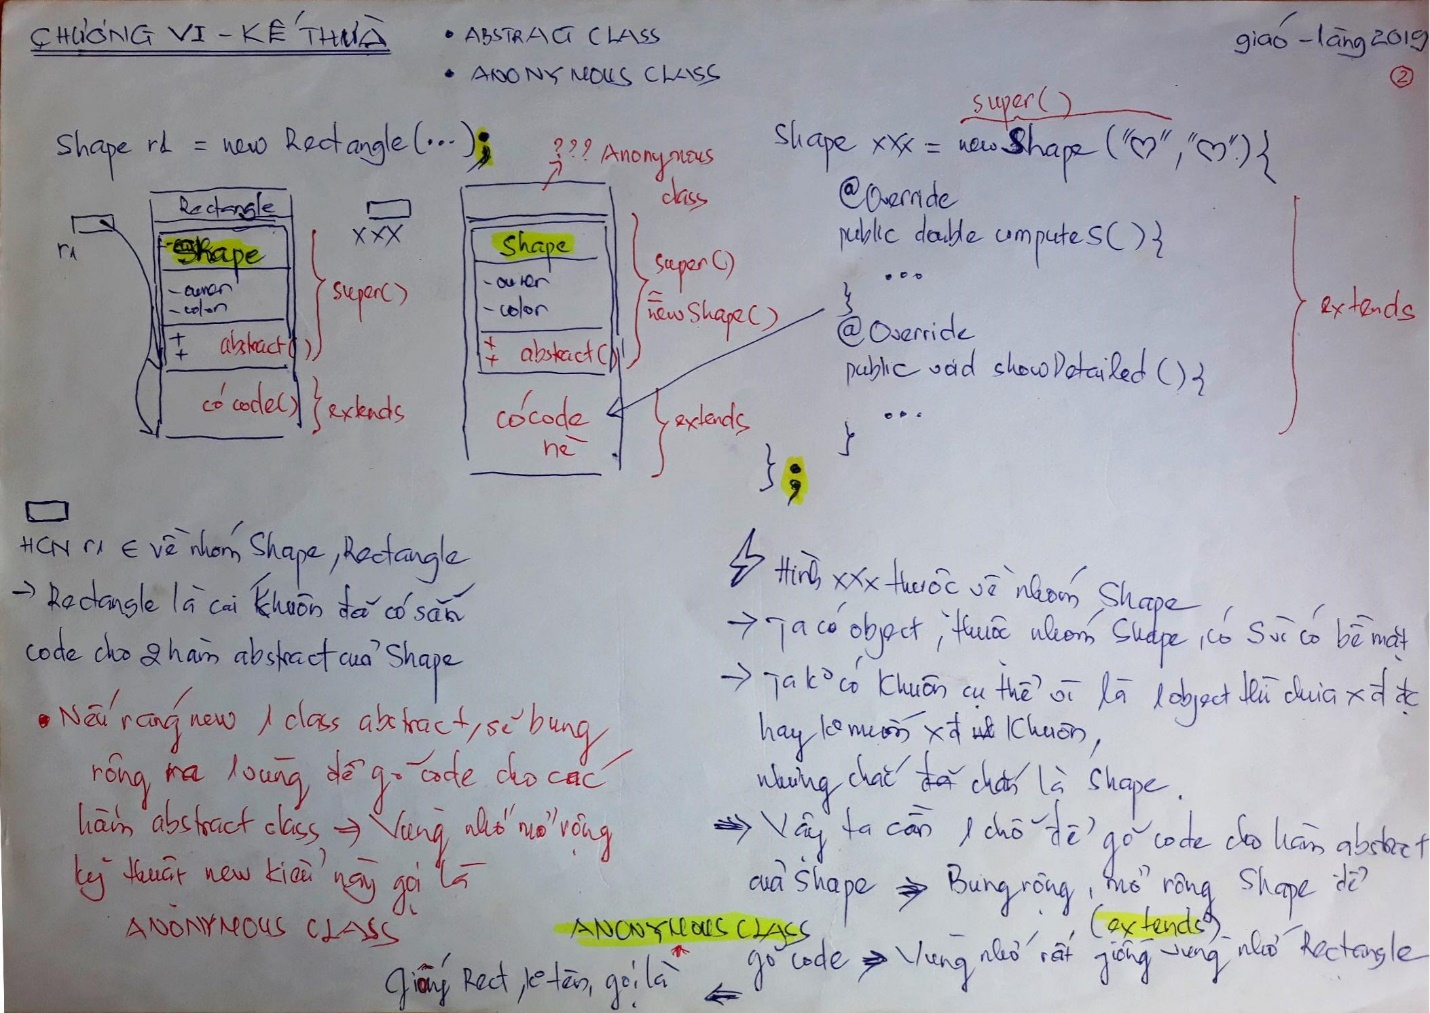 CHƯƠNG VI - KẾ THỪA
• ABSTRACT CLASS
• ANONYMOUS CLASS
giáo-làng 2019
2
Shape r1 = new Rectangle(...);
Rectangle
r1
Shape
- owner
- color
+
+ abstract()
super()
có code()
extends
xxx
??? Anonymous
class
Shape
- owner
- color
+
+ abstract()
super()
=
new Shape()
có code
nè
extends
super()
Shape xxx = new Shape("♡","♡"){
@Override
public double computeS(){
...
}
@Override
public void showDetailed(){
...
}
};
extends
HCN r1 ∈ về nhóm Shape, Rectangle
→ Rectangle là cái khuôn đã có sẵn
code cho 2 hàm abstract của Shape
• Nếu ráng new 1 class abstract, sẽ bung
rộng ra 1 vùng để gõ code cho các
hàm abstract class ⇒ Vùng nhớ mở rộng
kỹ thuật new kiểu này gọi là
ANONYMOUS CLASS
Hình xxx thuộc về nhóm Shape
→ Ta có object, thuộc nhóm Shape, có S vì có bề mặt
→ Ta ko có khuôn cụ thể vì là 1 object thì chưa xđ đc
hay ko muốn xđ khuôn,
nhưng chắc chắn là Shape.
⇒ Vậy ta cần 1 chỗ để gõ code cho hàm abstract
của Shape ⇒ Bung rộng, mở rộng Shape để
(extends)
gõ code ⇒ Vùng nhớ rất giống vùng nhớ Rectangle
ANONYMOUS CLASS
Giống Rect, ko tên, gọi là ⇐